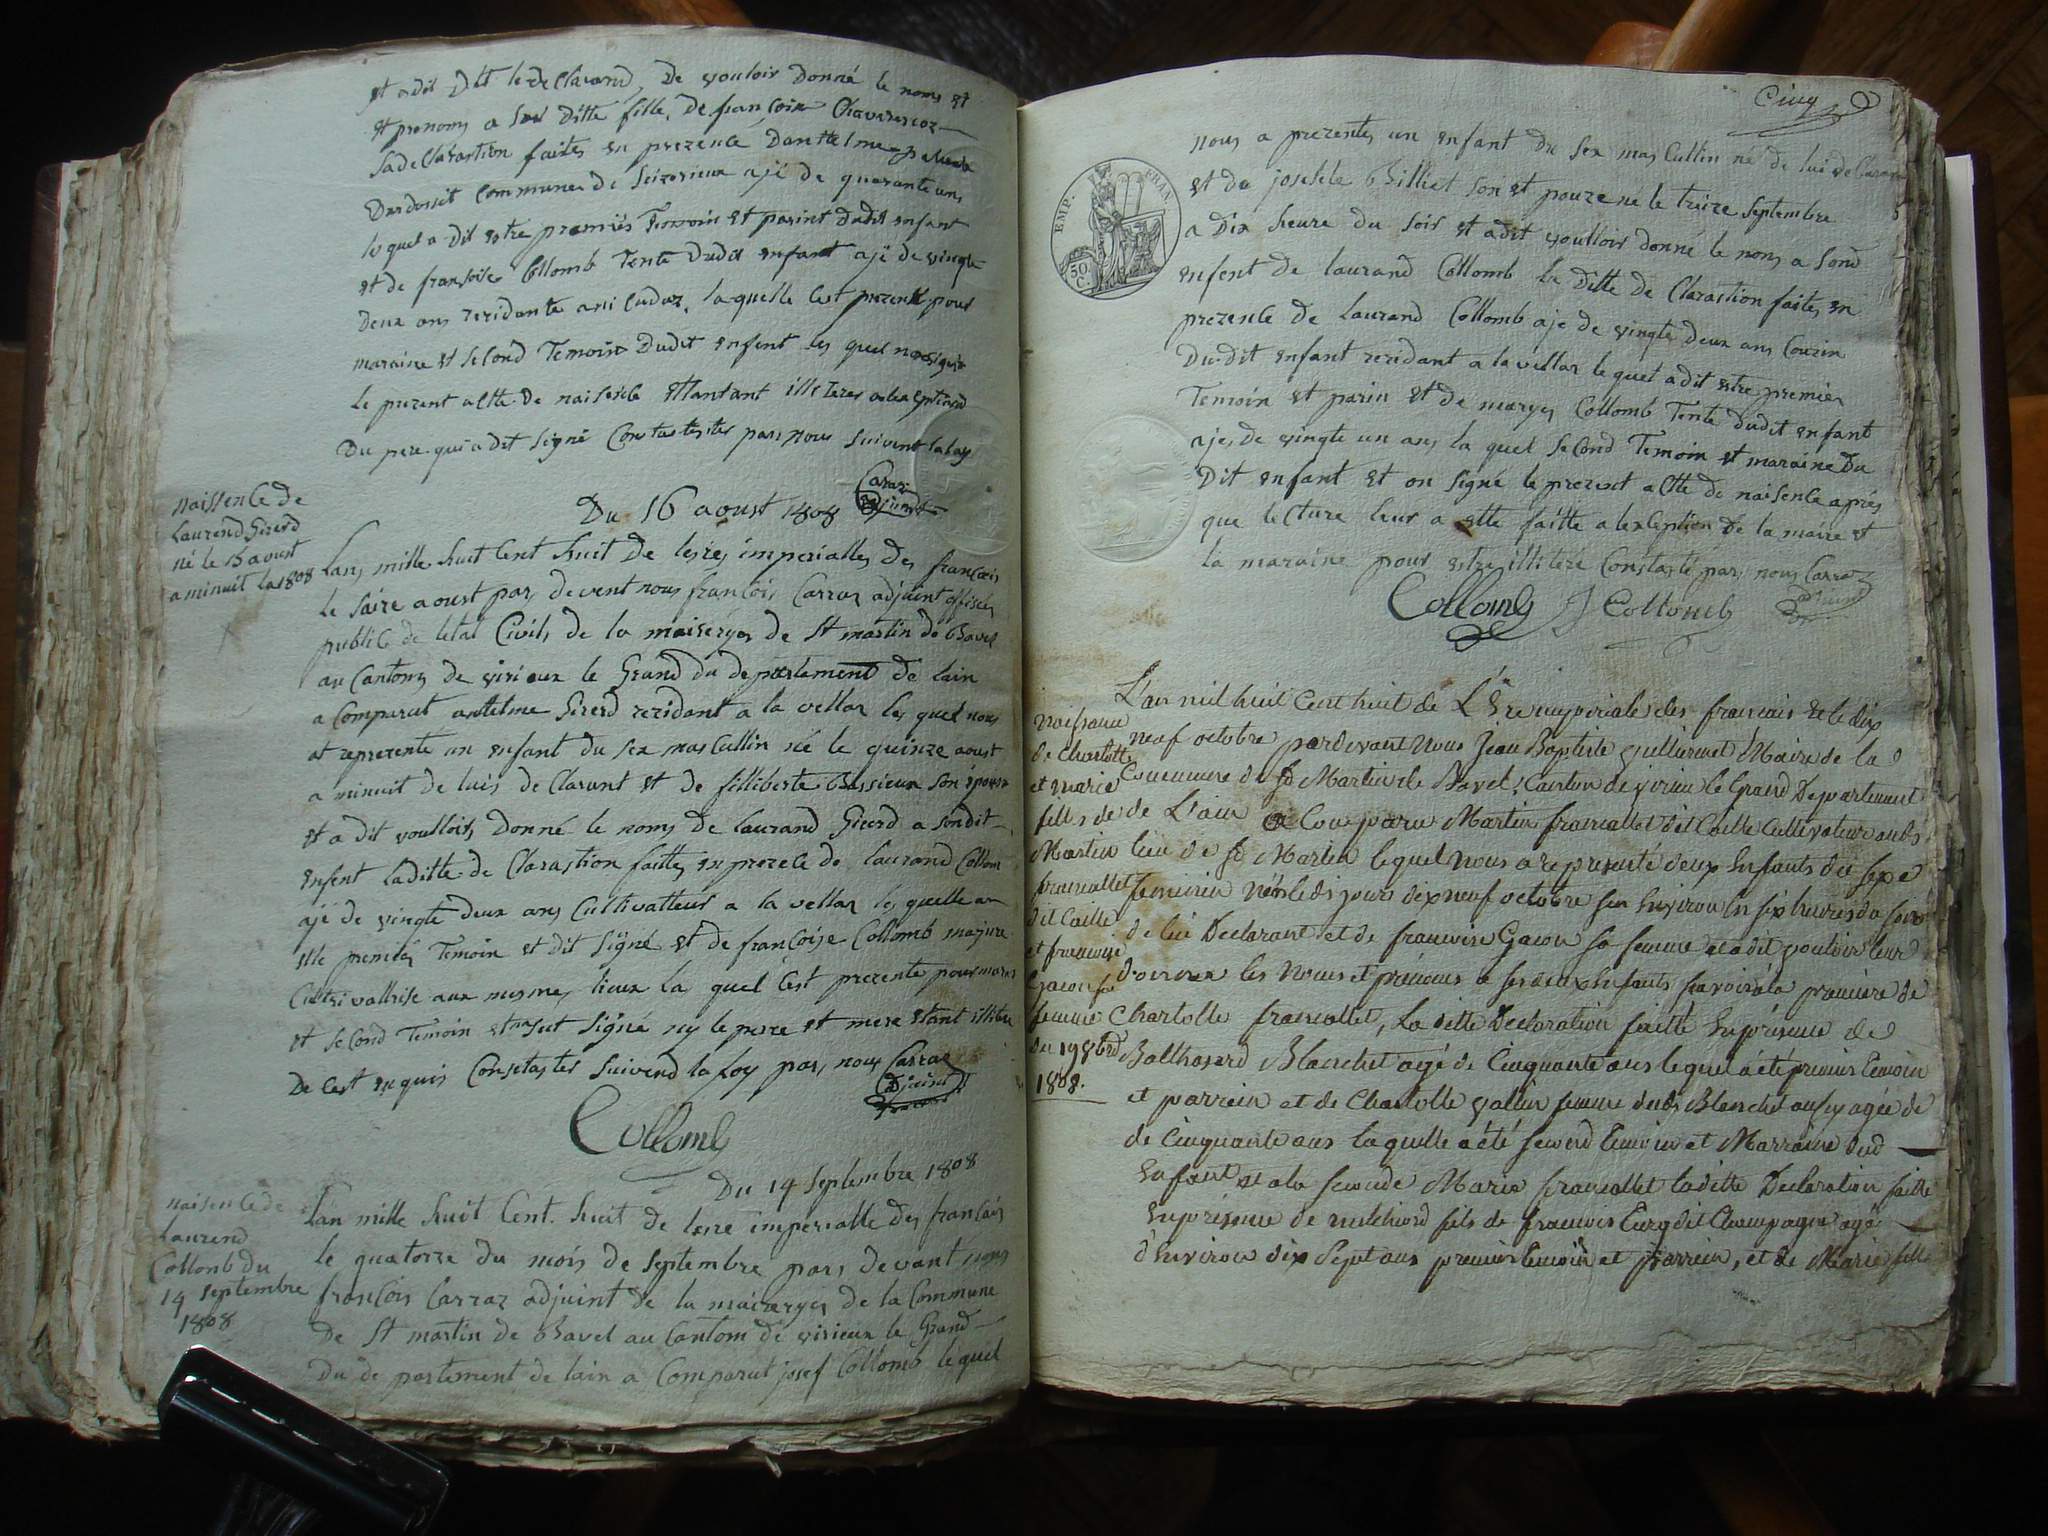 et a dit Dit le de Clarand, De vouloir donné le noms et
et prenoms a sa ditte fille, De françoise Chavarescoz
sa de Clarastion faites en prezence Danthelme
Dardossit Commune de Seizerieux ajé de quarante ans
lequel a dit estre premiés Temoin et parint Dudit enfant
et de fransoise Collomb Tente Dudit enfant ajé de vingte
Deux ans rezidante a laquelle C'est prezente pour
maraine et second Temoin Dudit enfent les quel
Le prezent actte De naisence ettantant illiteres
Du pere qui a dit signé Constastester par nous suivent la loy
Carraz
adjuint
Du 16 aoust 1808
naissence de
Laurend Girerd
né le 15 aoust
a minuit la 1808
Lans mille huit Cent huit De leres imperialles des françois
le saize aoust pars devent nous françois Carraz adjuint officies
public de letat Civils de la maiseryes de St martin de Bavel
au Cantons de virieux le Grand du departement de lain
a Comparut antelme Girerd rezidant a la vellaz les quel nous
at reprezente un enfant du sex mas Cullin né le quinze aoust
a minuit de luis de Clarant et de filliberte Bassieux son épouse
et a dit voullois donné le noms de Laurand Girerd a sondit
enfent laditte de Clarastion faittes en prezece de Laurand Collom
ajé de vingte deux ans Cultivatteur a la vellaz les quelle
premiés Temoin et dit signé et de françoise Collomb majure
Culttivattrise aux mesmes lieux la quel c'est prezente pour
et second Temoin et signé ny le perre et mere etant illiter
De cest enquis Constastes suivend la loy pars nous Carraz
adjuint
Collomb
Du 14 septembre 1808
naisence de
Laurend
Collomb du
14 septembre
1808
Lan mille huit Cent huit de lere imperialle des françois
le quatorze du mois de septembre pars devant nous
françois Carraz adjuint de la maireryes de la Commune
De St martin de Bavel au Cantom de virieux le Grand
Du de partement de lain a Comparut josef Collomb lequel
Cinq
EMP. FRAN.
50 C.
nous a prezentes un enfant du sex mas Cullin né de lui de Claran
et de Billiet son et pouze né le treize septembre
a Dix heure du soir et a dit voulloir donné le nons a sond
enfent de laurand Collomb la ditte de Clarastion faites en
prezence de Laurand Collomb aje de vingte deux ans Couzin
Du dit enfant rezidant a la vellaz le quel a dit estre premier
Temoin et parin et de maryes Collomb Tente dudit enfant
ajes de vingte un ans la quel second Temoin et maraine Du
Dit enfant et on signé le prezent actte de naisence aprés
que lecture leur a ette faitte a lexseption de la maire et
la maraine pour estre illitéré Constasté pars nous Carraz
adjuint
Collomb J Collomb
L'an mil huit Cent huit de L'Ere imperiale des francais et le dix
neuf octobre pardevant Nous Jean Baptiste Maire de la
Commune de St Martin de Bavel, Canton de virieu le Grand Departement
de L'ain a Comparu Martin francallet dit Caille Cultivateur audt
lieu de St Martin lequel Nous a representé deux Enfants du sexe
feminin Nés led. jours dix neuf octobre sur Environ les six heures du soir
de lui Declarant et de francoise Gacon sa femme et a dit vouloir leur
donner les Noms et prénoms a ses deux Enfants savoir a la première de
Charlotte francallet, La ditte Declaration faitte En présence de
Balthasard Blanchet agé de Cinquante ans lequel a été premier temoin
et parrein et de Charlotte vallin femme dudt Blanchet aussy agée de
de Cinquante ans laquelle a été second temoin et Marraine dud
Enfant et a la seconde Marie francallet laditte Declaration faitte
En présence de melchiord fils de francois dit Champagne agé
d'Environ dix Sept ans premier temoin et parrein, et de Marie fille
Naissance
de Charlotte
et Marie
filles de
Martin
francallet
dit Caille
et francoise
Gacon sa
femme
du 19 8bre
1808.